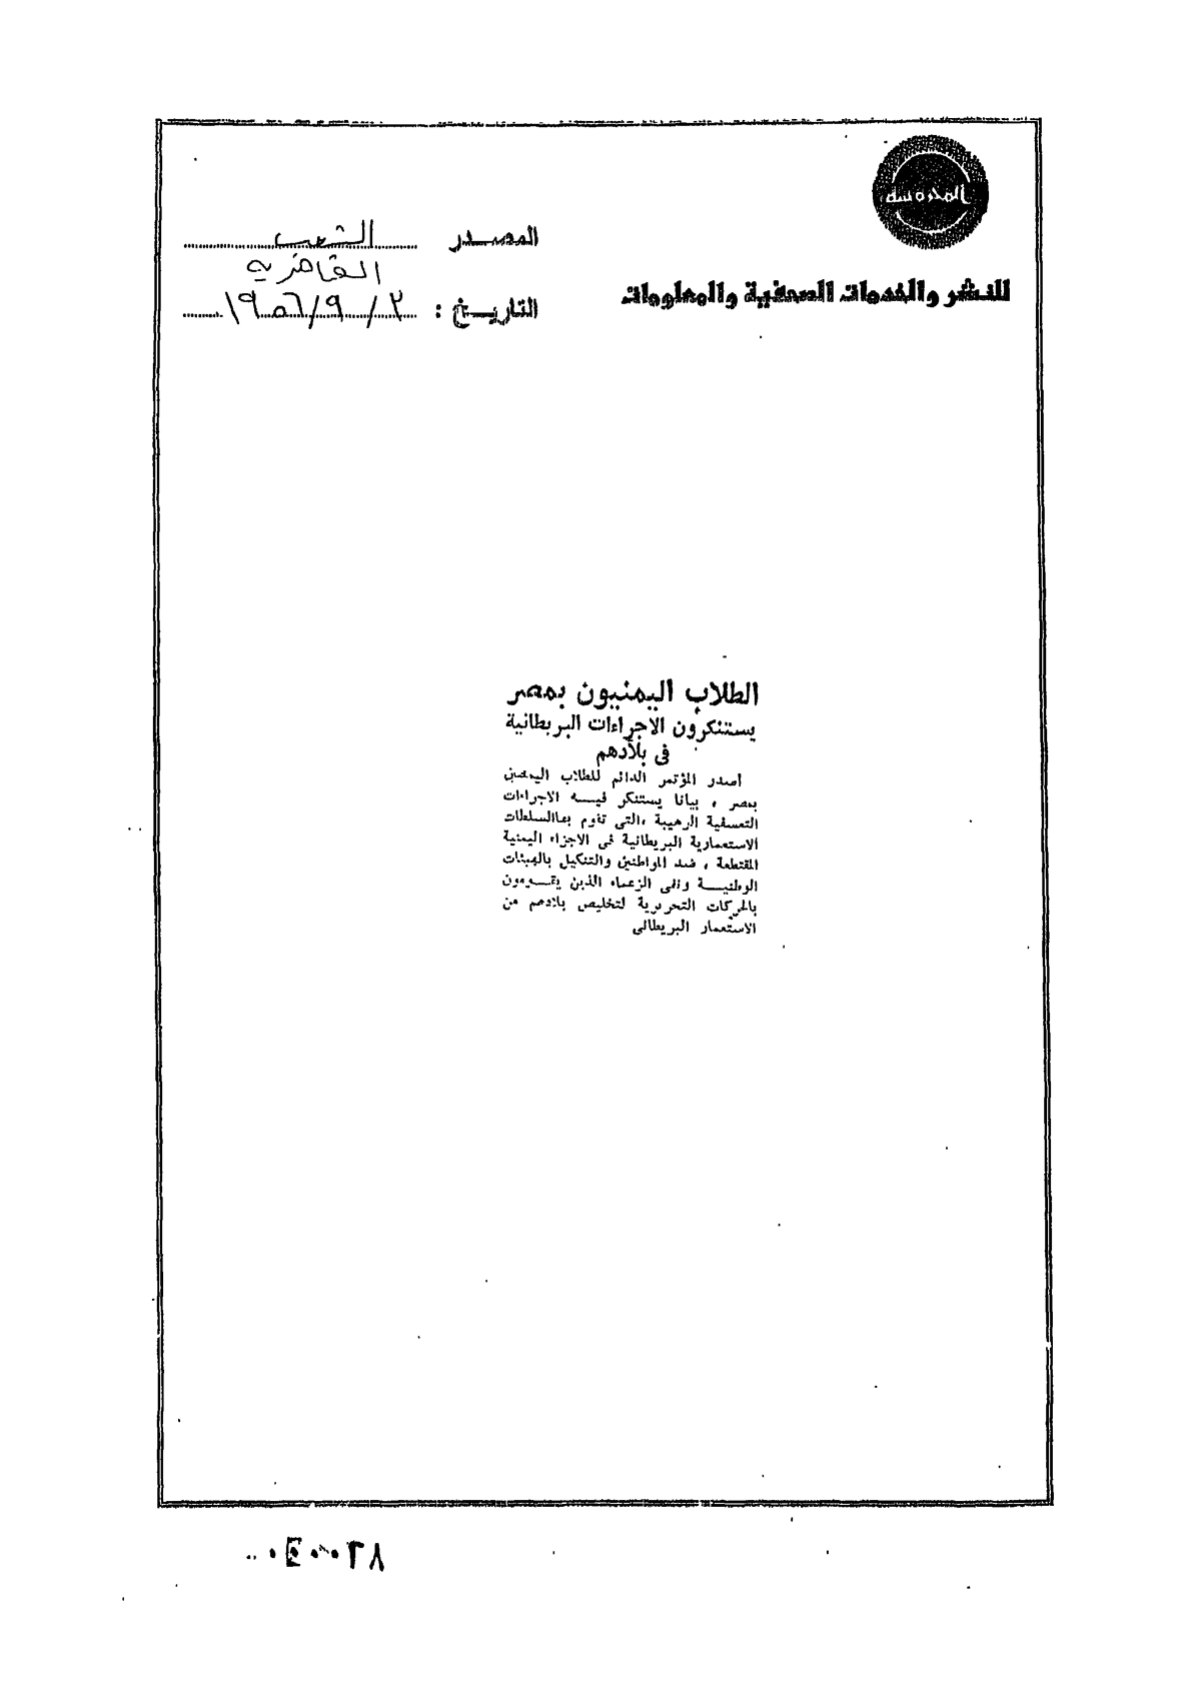 المحروسة
للنشر والخدمات الصحفية والمعلومات
المصدر الشعب
القاهرية
التاريخ : ٢/٩/١٩٥٦
الطلاب اليمنيون بمصر
يستنكرون الاجراءات البريطانية
فى بلادهم
أصدر المؤتمر الدائم للطلاب اليمنيين
بمصر ، بيانا يستنكر فيه الاجراءات
التعسفية الرهيبة ،التى تقوم بهاالسلطات
الاستعمارية البريطانية فى الاجزاء اليمنية
المقتطعة ، ضد المواطنين والتنكيل بالهيئات
الوطنية ونفى الزعماء الذين يقومون
بالحركات التحررية لتخليص بلادهم من
الاستعمار البريطانى